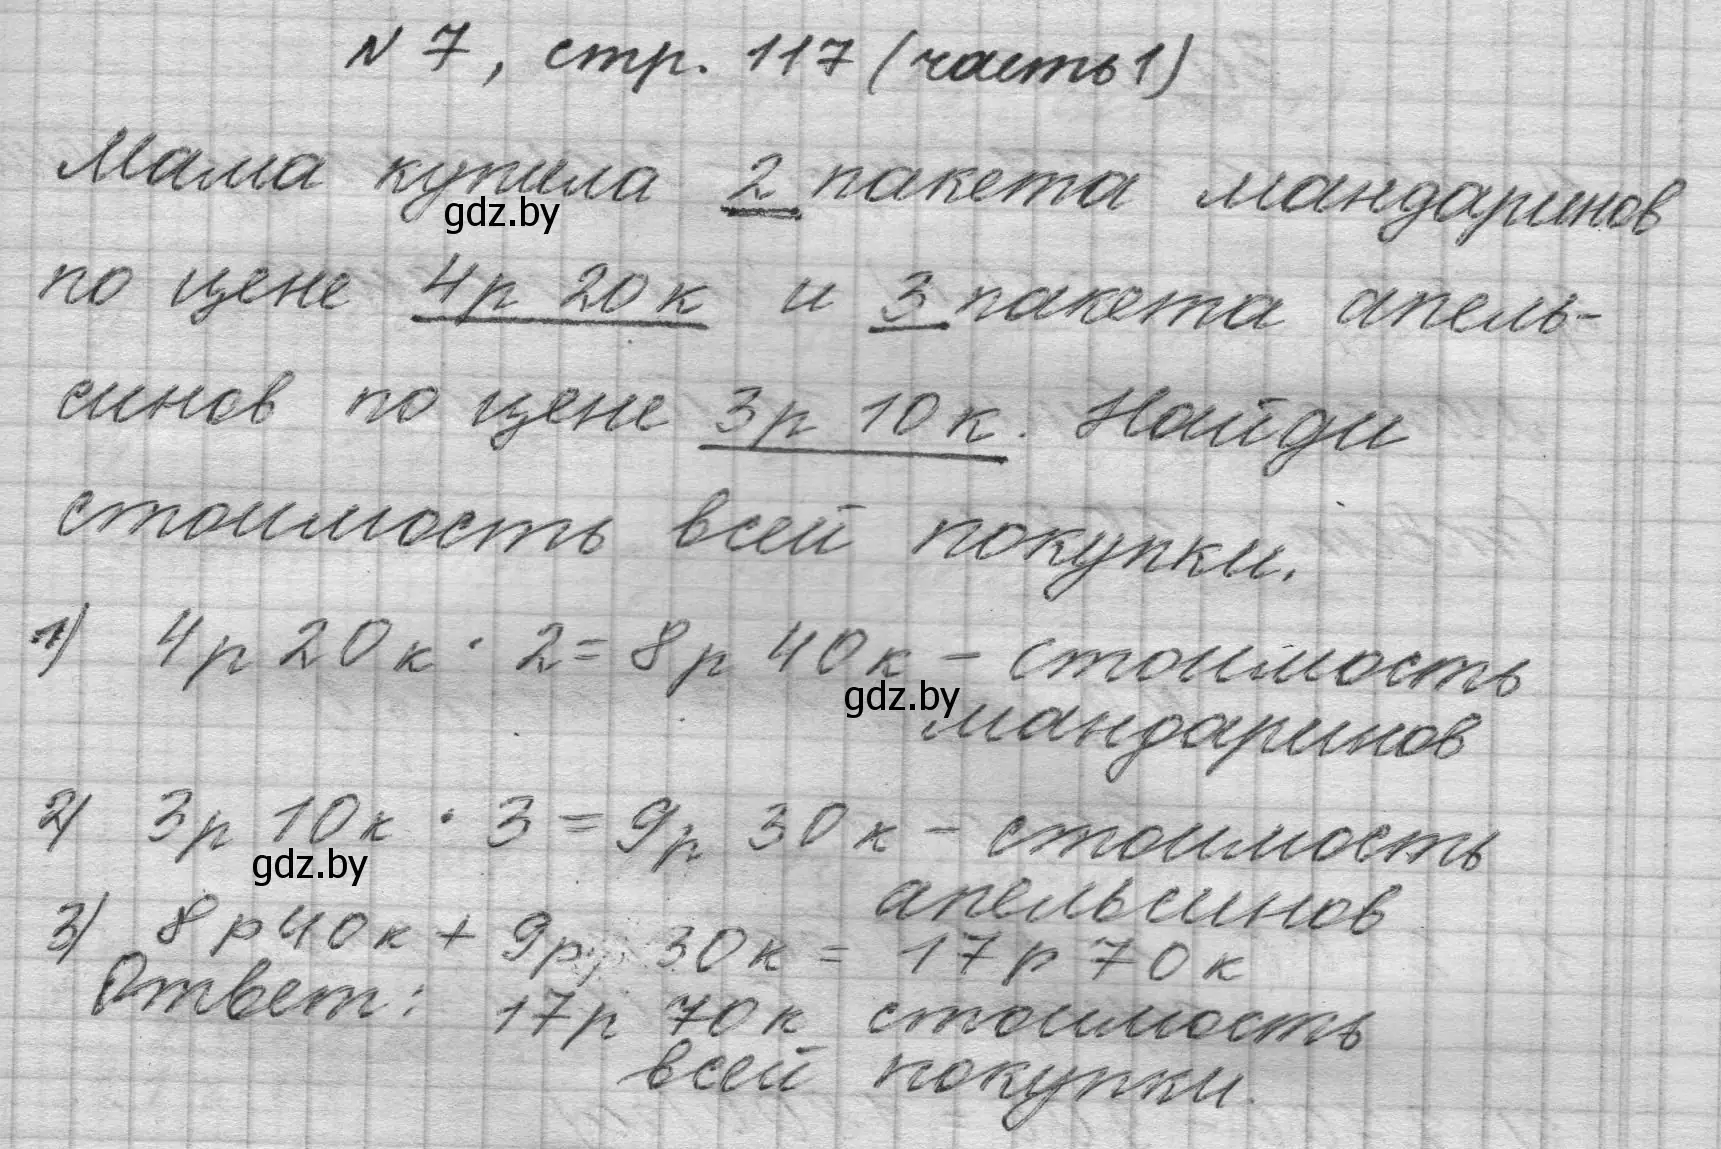 N 7, стр. 117 (часть 1)
Мама купила 2 пакета мандаринов
gdz.by
по цене 4р 20к и 3 пакета апель-
синов по цене 3р 10к. Найди
стоимость всей покупки.
1) 4р 20к · 2 = 8р 40к – стоимость
gdz.by
мандаринов
2) 3р 10к · 3 = 9р 30к – стоимость
gdz.by
апельсинов
3) 8р 40к + 9р, 30к = 17р 70к
Ответ: 17р 70к стоимость
всей покупки.